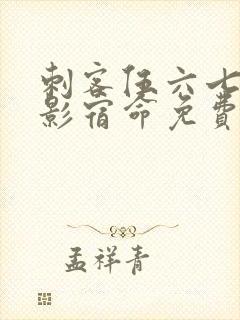 刺客伍六七
影宿命免费
孟祥青